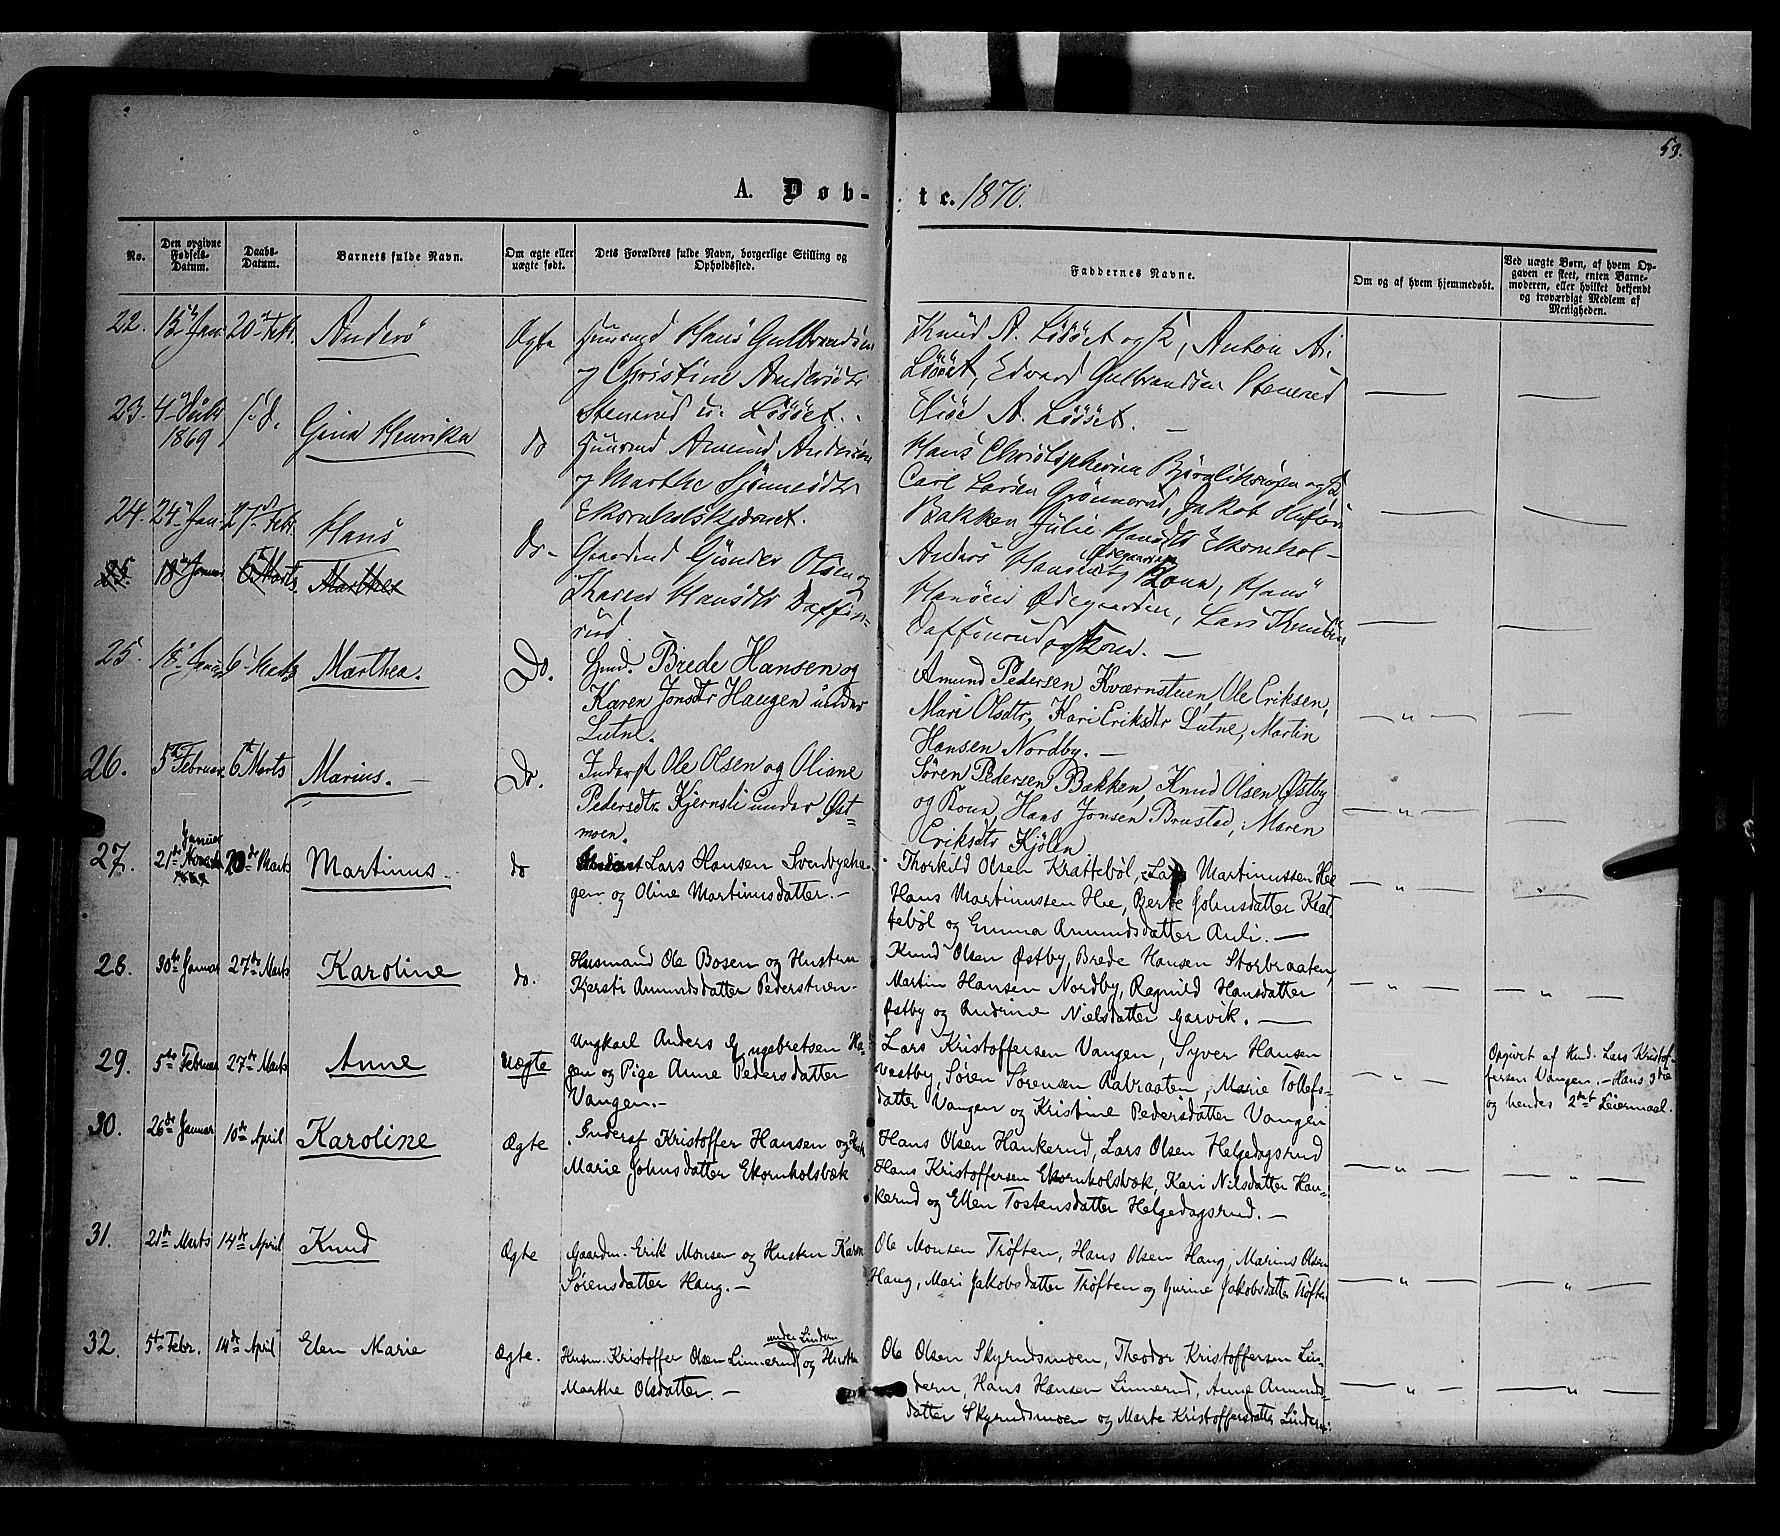 53.
A. Døb-te. 1870.
No.
Den opgivne Fødsels-Datum.
Daabs-Datum.
Barnets fulde Navn.
Om ægte eller uægte født.
Dets Forældres fulde Navn, borgerlige Stilling og Opholdssted.
Faddernes Navne.
Om og af hvem hjemmedøbt.
Ved uægte Børn, af hvem Opgaven er skeet, enten Barnemoderen, eller hvilket bekjendt og troværdigt Medlem af Menigheden.
22. 12 Jan 20 Febr. Anders Ægte Hans Gulbrandsen
og Christine Andersdtr
Stenerud u. Løset.
Knud A. Løset og K, Anton A.
Løset, Edvard Gulbrandsen Stenerud
Elise A. Løset. —
23. 4 Julij 1869 s. d. Gina Henrika do Husmd Amund Andersen
og Marthe
Ekornhols
Hans Christophersen og K
Carl Larsen Grønnerud, Jakob
Bakken Julie Hansdtr Ekornhol-
24. 24 Jan 27 Febr. Hans Do- Gaardmd Gunder Olsen og
Karen Hansdtr Daffin-
rud
Anders Hansen Ødegaarden og Kona, Hans
Hansen Ødegaarden, Lars Knudsen
Daffinrud og Kona. —
25. 18 Januar 6 Marts Marthea
25. 18 Januar 6 Marts Marthea. Do. Husmd. Brede Hansen og
Karen Jonsdtr Haugen under
Lutne.
Amund Pedersen Kværnstuen, Ole Eriksen,
Mari Olsdtr, Kari Eriksdtr Lutne, Martin
Hansen Nordby. —
26. 5te Februar 6te Marts Marius. — Do. Inderst Ole Olsen og Oliane
Pedersdtr. Kjernsli under Øst-
moen.
Søren Pedersen Bakken, Knud Olsen Østby
og Kona, Hans Jonsen Brustad, Maren
Eriksdtr Kjølen
27. 21de Januar 20de Marts Martinus. do Lars Hansen Svenbyeha-
gen og Oline Martinusdatter. —
Thorkild Olsen Krattebøl, Lars Martinussen Hee
Hans Martinussen Hee, Berte Johnsdatter Krat-
tebøl og Emma Amundsdatter Auli. —
28. 30te Januar 27de Marts Karoline do. Husmand Ole Bosen og Hustru
Kjersti Amundsdatter Pederstuen-
Knud Olsen Østby, Brede Hansen Storbraaten,
Martin Hansen Nordby, Ragnild Hansdatter
Østby og Andrine Nielsdatter Garvik. —
29. 5te Februar 27de Marts Anne Uægte Ungkarl Anders Engebretsen Ha-
gen og Pige Anne Pedersdatter
Vangen. —
Lars Kristoffersen Vangen, Syver Hansen
Vestby, Søren Sørensen Aabraaten, Marie Tollefs-
datter Vangen og Kristine Pedersdatter Vangen
Opgivet af Husmd. Lars Kristof-
fersen Vangen. — Hans 3die
og hendes 2det Leiermaal.
30. 26de Januar 10de April Karoline Ægte Inderst Kristoffer Hansen og Hustru
Marie Johnsdatter Ekornholsbæk
Hans Olsen Hankerud, Lars Olsen Helgedagsrud
Hans Kristoffersen Ekornholsbæk, Kari Nilsdatter Han-
kerud og Ellen Tostensdatter Helgedagsrud. —
31. 21de Marts 14de April Knud Ægte Gaardm. Erik Monsen og Hustru Karen
Sørensdatter Haug. —
Ole Monsen Trøften, Hans Olsen Haug, Marius Olsen
Haug, Mari Jakobsdatter Trøften og Gurine Jakobsdatter Trøften
32. 5te Febr. 14de April Elen Marie Ægte. Husm. Kristoffer Olsen Linnerud under Lindern og Hustru
Marthe Olsdatter. —
Ole Olsen Skyrudsmoen, Theodor Kristoffersen Lin-
dern, Hans Hansen Linnerud, Anne Amunds-
datter Skyrudsmoen og Marte Kristoffersdatter Lindern.